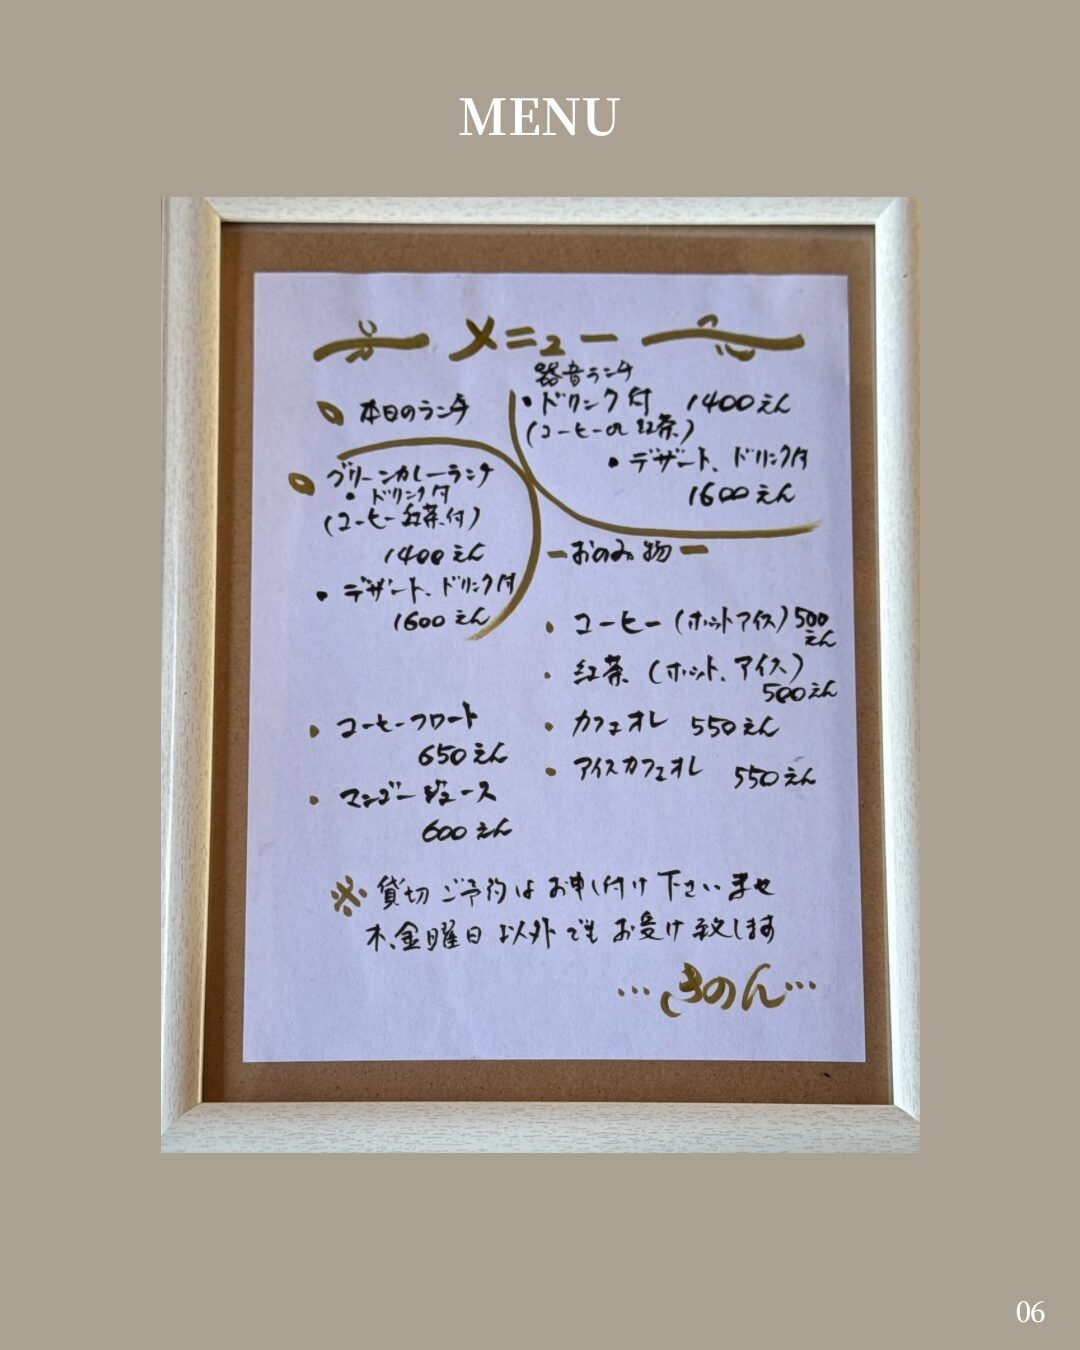 MENU
メニュー
本日のランチ
器音ランチ
・ドリンク付 1400えん
(コーヒーor紅茶)
・デザート、ドリンク付
1600えん
グリーンカレーランチ
・ドリンク付
(コーヒー紅茶付)
1400えん
・デザート、ドリンク付
1600えん
ーおのみ物ー
・コーヒー(ホットアイス)500えん
・紅茶(ホット、アイス)
500えん
・カフェオレ 550えん
・アイスカフェオレ 550えん
・コーヒーフロート
650えん
・マンゴージュース
600えん
※貸切ご予約はお申し付け下さいませ
木、金曜日以外でもお受け致します
…きのん…
06